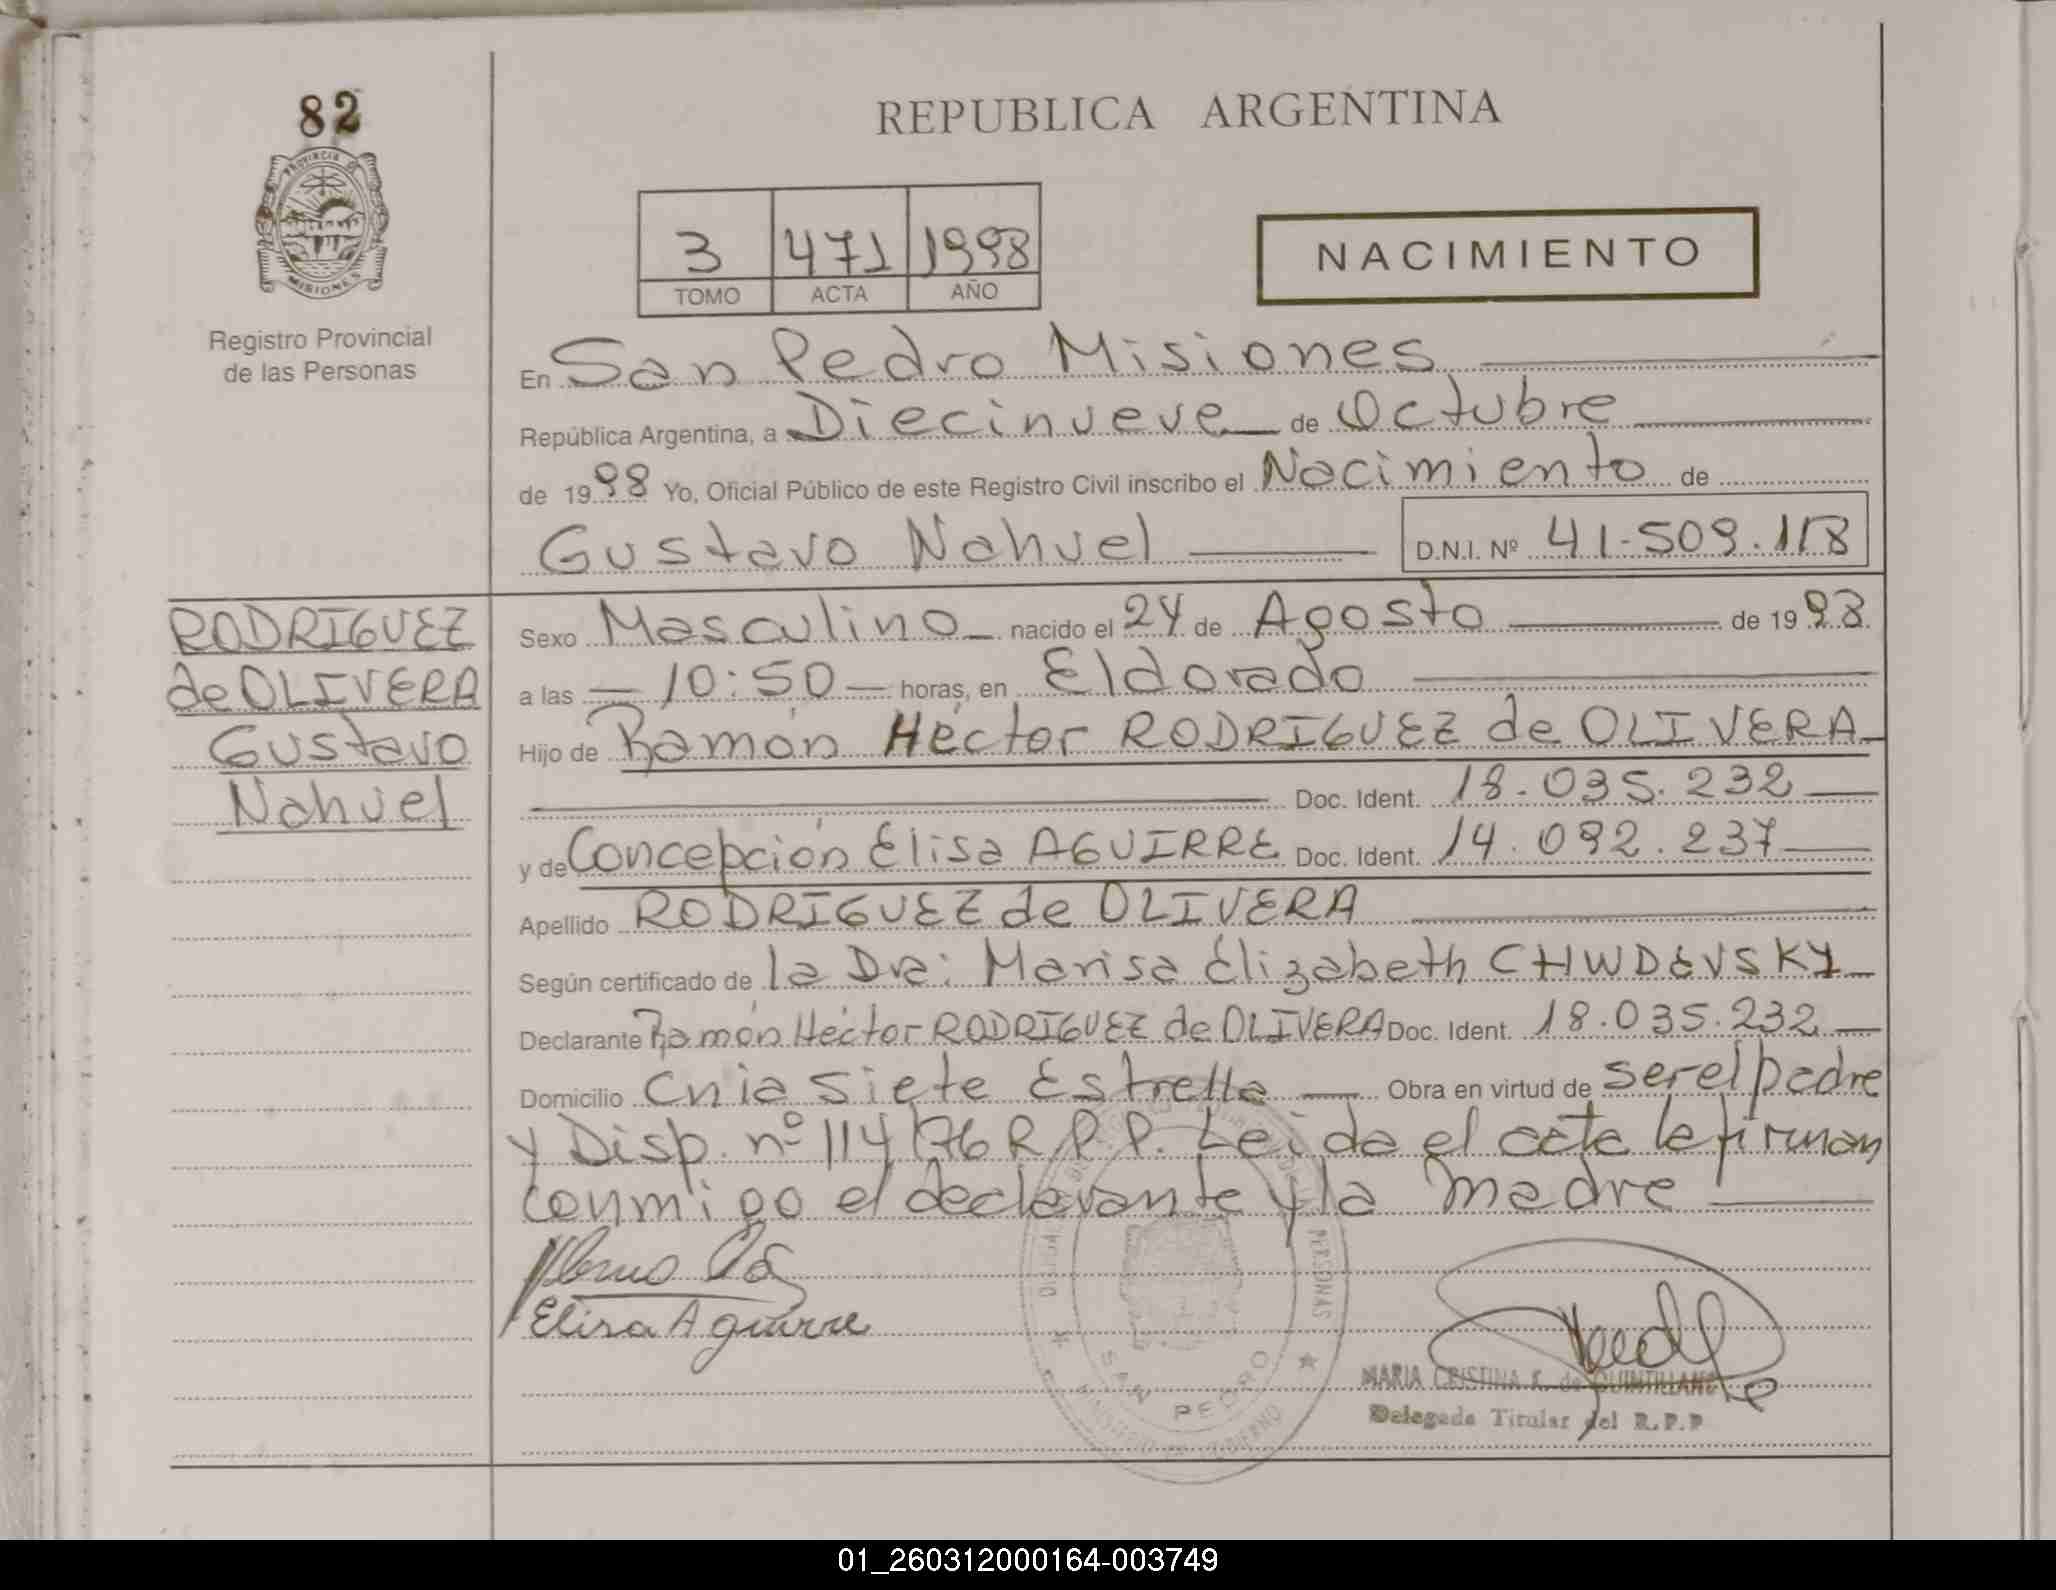 82
PROVINCIA DE
MISIONES
Registro Provincial
de las Personas
REPUBLICA ARGENTINA
3 471 1998
TOMO ACTA AÑO
NACIMIENTO
En San Pedro Misiones
República Argentina, a Diecinueve de Octubre
de 1998 Yo, Oficial Público de este Registro Civil inscribo el Nacimiento de
Gustavo Nahuel D.N.I. Nº 41.509.118
RODRIGUEZ
de OLIVERA
Gustavo
Nahuel
Sexo Masculino nacido el 24 de Agosto de 1998
a las 10:50 horas, en Eldorado
Hijo de Ramón Héctor RODRIGUEZ de OLIVERA
Doc. Ident. 18.035.232
y de Concepción Elisa AGUIRRE Doc. Ident. 14.092.237
Apellido RODRIGUEZ de OLIVERA
Según certificado de la Dra: Marisa Elizabeth CHWDEVSKY
Declarante Ramón Héctor RODRIGUEZ de OLIVERA Doc. Ident. 18.035.232
Domicilio Cnia Siete Estrella Obra en virtud de ser el padre
y Disp. nº 114/76 R.P.P. Leida el acta la firman
conmigo el declarante y la madre
Elisa Aguirre
PERSONAS
SAN PEDRO
MINISTERIO DE GOBIERNO
MARIA CRISTINA K. de QUINTILLANO
Delegada Titular del R.P.P
01_260312000164-003749